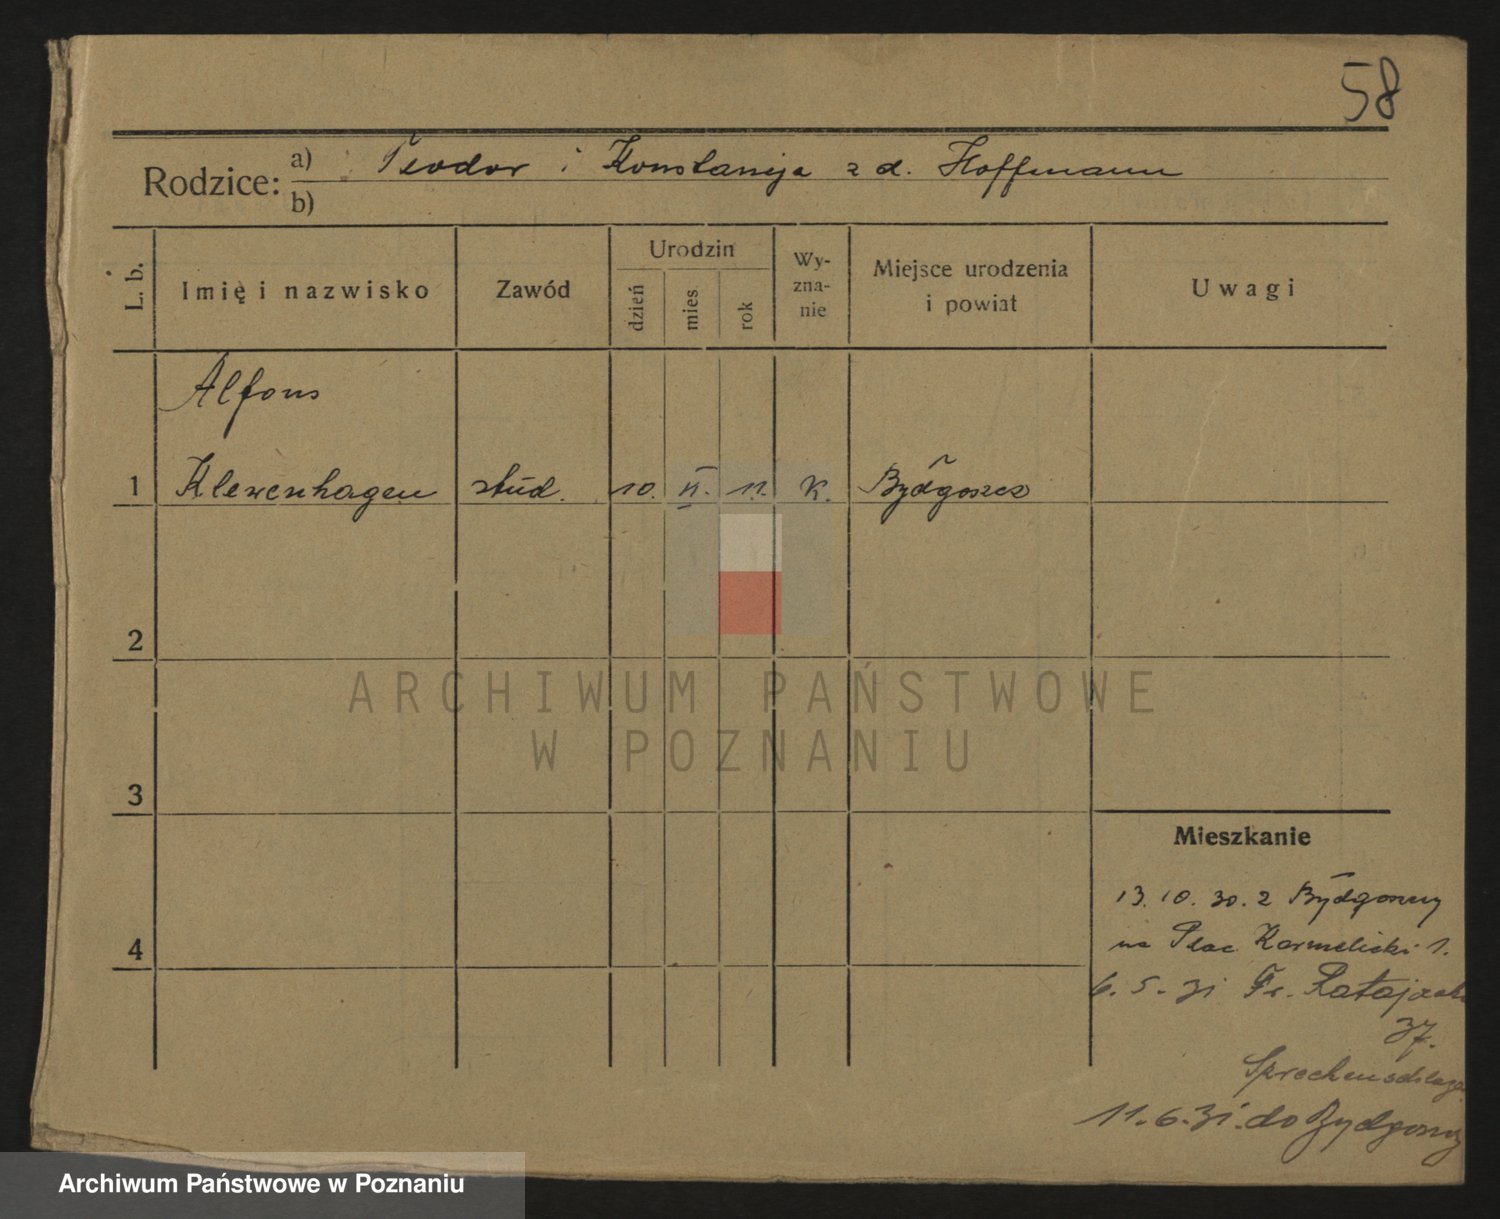 58
Rodzice: a) Teodor i Konstancja z d. Hoffmann
b)
L. b.
Imię i nazwisko
Zawód
Urodzin
dzień
mies
rok
Wy-
zna-
nie
Miejsce urodzenia
i powiat
Uwagi
Alfons
1 Klewenhagen stud. 10. II. 11. K. Bydgoszcz
2
ARCHIWUM PAŃSTWOWE
W POZNANIU
3
Mieszkanie
13. 10. 30. z Bydgoszczy
na Plac Karmelicki 1.
4
6. 5. 31 Fr. Ratajczaka
37.
11. 6. 31. do Bydgoszczy
Archiwum Państwowe w Poznaniu